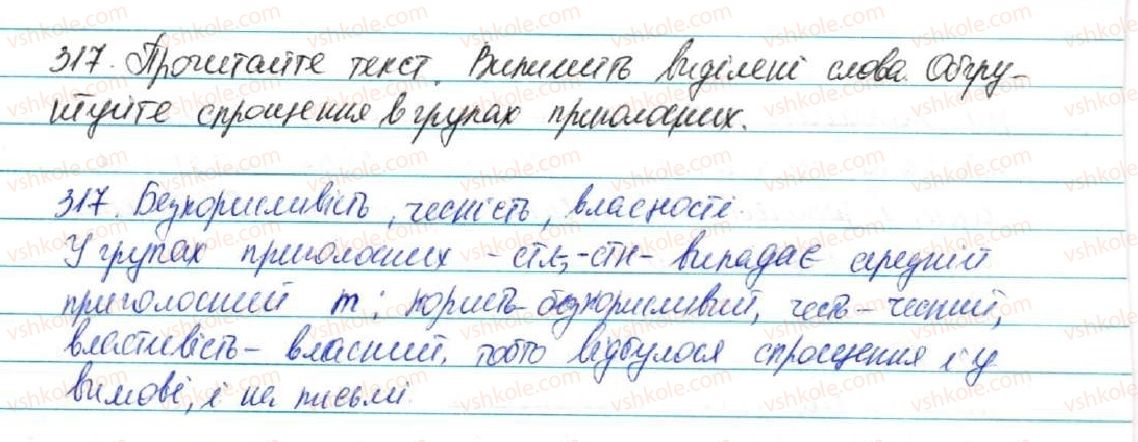 317. Прочитайте текст. Випишіть виділені слова. Обґру-
нтуйте спрощення в групах приголосних.
317. Безкорисливість, чесність, власності.
У групах приголосних -стл-, -стн- випадає середній
приголосний т: користь-безкорисливий, честь-чесний,
властивість-власний, тобто відбулося спрощення і у
вимові, і на письмі.